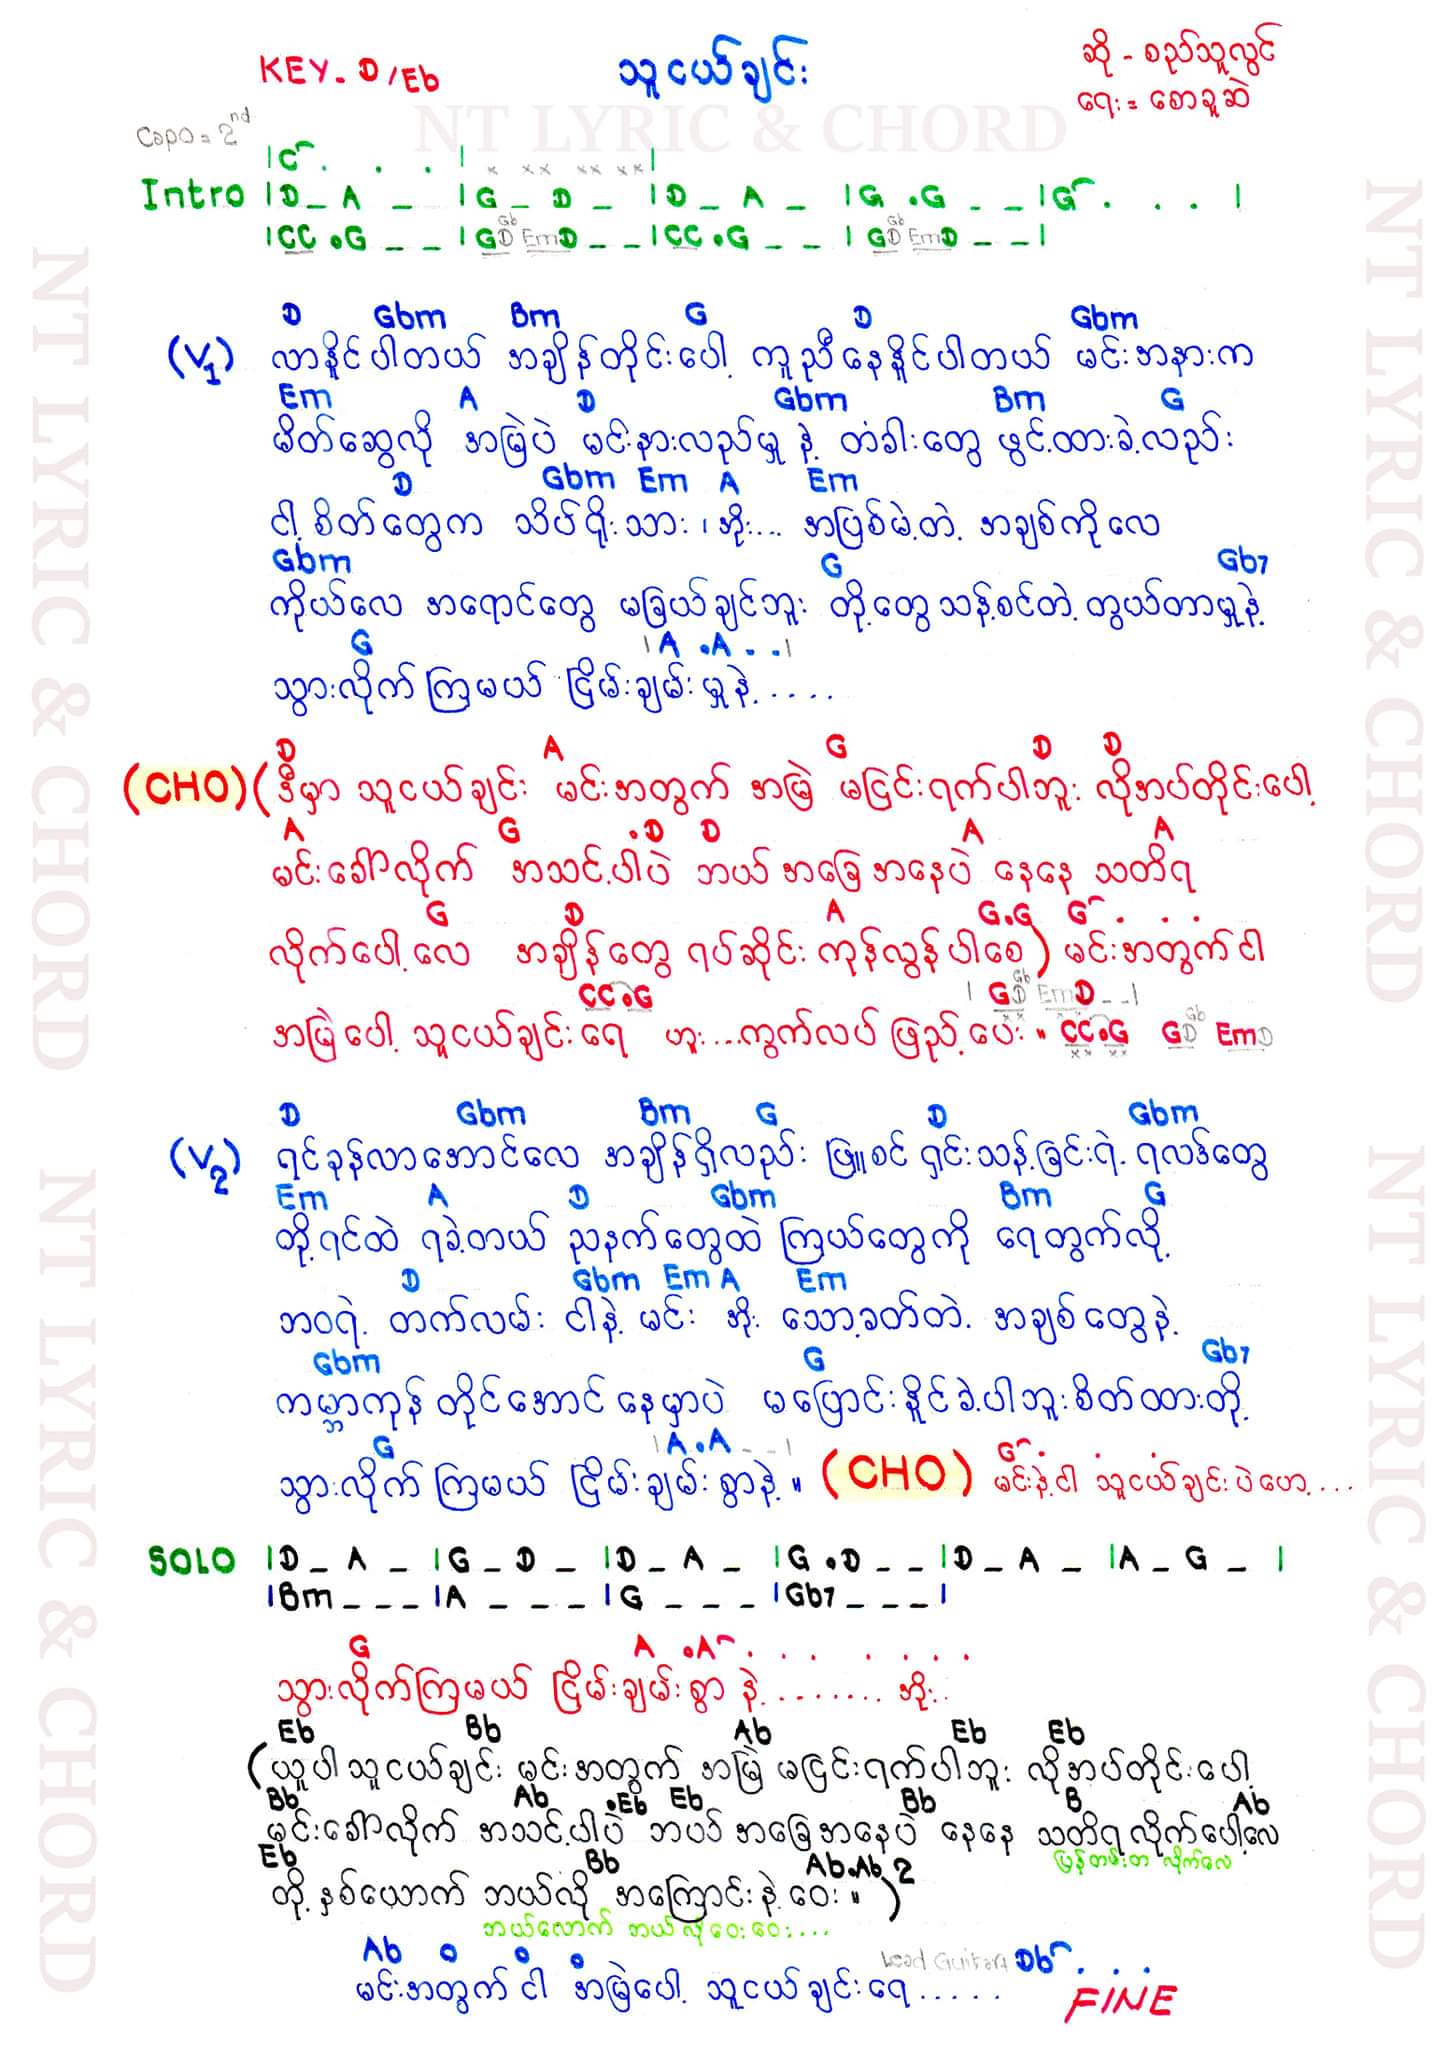 KEY - D/Eb
သူငယ်ချင်း
ဆို - စည်သူလွင်
ရေး = စောခူဆဲ
Capo = 2nd
NT LYRIC & CHORD
|C . . . | x xx xx xx|
Intro |D _ A _ |G _ D _ |D _ A _ |G .G _ _ |G . . . |
|CC .G _ _ |GD Gb EmD _ _ |CC .G _ _ |GD Gb EmD _ _ |
D Gbm Bm G D Gbm
(V1) လာနိူင်ပါတယ် အချိန်တိုင်းပေါ့ ကူညီနေနိူင်ပါတယ် မင်းအနားက
Em A D Gbm Bm G
မိတ်ဆွေလို အမြဲပဲ မင်းနားလည်မှု နဲ့ တံခါးတွေ ဖွင့်ထားခဲ့လည်း
D Gbm Em A Em
ငါ့စိတ်တွေက သိပ်ရိုးသား ၊ အိုး... အဖြစ်မဲ့တဲ့ အချစ်ကိုလေ
Gbm G Gb7
ကိုယ်လေ အရောင်တွေ မခြယ်ချင်ဘူး တို့တွေသန့်စင်တဲ့ တွယ်တာမှုနဲ့
G |A .A . . |
သွားလိုက်ကြမယ် ငြိမ်းချမ်းမှုနဲ့ . . . . .
D A G D D
(CHO) (ဒီမှာ သူငယ်ချင်း မင်းအတွက် အမြဲ မငြင်းရက်ပါဘူး လိုအပ်တိုင်းပေါ့
A G .D D A A
မင်းခေါ်လိုက် အသင့်ပါပဲ ဘယ်အခြေအနေပဲ နေနေ သတိရ
G D A G.G G . . .
လိုက်ပေါ့လေ အချိန်တွေ ရပ်ဆိုင်းကုန်လွန်ပါစေ) မင်းအတွက်ငါ
CC.G | GD Gb EmD _ _ |
အမြဲပေါ့ သူငယ်ချင်းရေ ဟူး...ကွက်လပ် ဖြည့်ပေး ။ CC.G GD Gb EmD
D Gbm Bm G D Gbm
(V2) ရင်ခုန်လာအောင်လေ အချိန်ရှိလည်း ဖြူစင်ရှင်းသန့်ခြင်းရဲ့ ရလဒ်တွေ
Em A D Gbm Bm G
တို့ရင်ထဲ ရခဲ့တယ် ညနက်တွေထဲ ကြယ်တွေကို ရေတွက်လို့
D Gbm Em A Em
ဘဝရဲ့ တက်လမ်း ငါနဲ့ မင်း အိုး သော့ခတ်တဲ့ အချစ်တွေနဲ့
Gbm G Gb7
ကမ္ဘာကုန် တိုင်အောင်နေမှာပဲ မပြောင်းနိူင်ခဲ့ပါဘူးစိတ်ထားတို့
G |A .A _ _ |
သွားလိုက်ကြမယ် ငြိမ်းချမ်းစွာနဲ့ ။ (CHO) G . . . မင်းနဲ့ငါ သူငယ်ချင်းပဲဟေ့....
SOLO |D _ A _ |G _ D _ |D _ A _ |G .D _ _ |D _ A _ |A _ G _ |
|Bm _ _ _ |A _ _ _ |G _ _ _ |Gb7 _ _ _ |
G A .A . . . . . . .
သွားလိုက်ကြမယ် ငြိမ်းချမ်းစွာ နဲ့ ........ အိုး..
Eb Bb Ab Eb Eb
(ယူပါသူငယ်ချင်း မင်းအတွက် အမြဲ မငြင်းရက်ပါဘူး လိုအပ်တိုင်းပေါ့
Bb Ab .Eb Eb Bb B Ab
မင်းခေါ်လိုက် အသင့်ပါပဲ ဘယ်အခြေအနေပဲ နေနေ သတိရလိုက်ပေါ့လေ
ပြန်တမ်းတ လိုက်လေ
Eb Bb Ab.Ab
တို့နှစ်ယောက် ဘယ်လို အကြောင်းနဲ့ဝေး ။)2
ဘယ်လောက် ဘယ်လိုဝေးဝေး...
Ab Lead Guitar Db . . .
မင်းအတွက် ငါ အမြဲပေါ့ သူငယ်ချင်းရေ.....
FINE
NT LYRIC & CHORD
NT LYRIC & CHORD
NT LYRIC & CHORD
NT LYRIC & CHORD